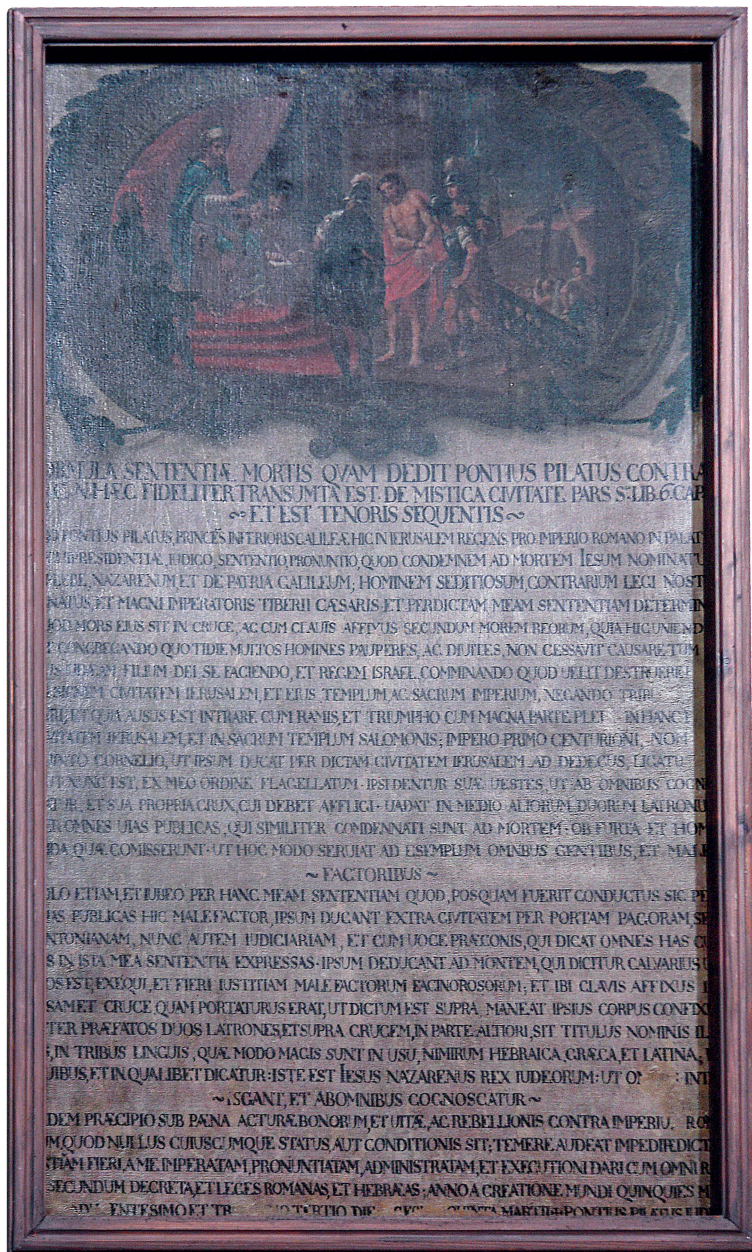 ORMULA SENTENTIÆ MORTIS QVAM DEDIT PONTIUS PILATUS CONTRA
HÆC FIDELITER TRANSUMTA EST DE MISTICA CIVITATE PARS S: LIB. 6. CAP
~ET EST TENORIS SEQUENTIS~
PONTIUS PILATUS PRINCEPS INFERIORIS GALILEÆ HIC IN IERUSALEM REGENS PRO IMPERIO ROMANO IN PALAT
PRESIDENTIÆ, IUDICO, SENTENTIO, PRONUNTIO, QUOD CONDEMNEM AD MORTEM IESUM NOMINATU
PLEBE, NAZARENUM ET DE PATRIA GALILEUM; HOMINEM SEDITIOSUM, CONTRARIUM LEGI NOST
NATUS, ET MAGNI IMPERATORIS TIBERII CÆSARIS. ET PERDICTAM MEAM SENTENTIAM DETERMIN
MORS EIUS SIT IN CRUCE, AC CUM CLAUIS AFFIXUS SECUNDUM MOREM REORUM, QUIA HIC UNIEND
CONGREGANDO QUOTIDIE MULTOS HOMINES PAUPERES, AC DIUITES, NON CESSAVIT CAUSARE TUM
IUDÆAM FILIUM DEI SE FACIENDO, ET REGEM ISRAEL. COMMINANDO QUOD UELIT DESTRUERE
CIVITATEM IERUSALEM, ET EIUS TEMPLUM, AC SACRUM IMPERIUM, NEGANDO TRIBU
ET QUIA AUSUS EST INTRARE CUM RAMIS, ET TRIUMPHO CUM MAGNA PARTE PLEB IN HANC
VITATEM IERUSALEM, ET IN SACRUM TEMPLUM SALOMONIS; IMPERO PRIMO CENTURIONI, NOM
CORNELIO, UT IPSUM DUCAT PER DICTAM CIVITATEM IERUSALEM AD DEDECUS, LIGATU
UT NUNC EST, EX MEO ORDINE FLAGELLATUM. IPSI DENTUR SUÆ UESTES, UT AB OMNIBUS COGN
ET SUA PROPRIA CRUX, CUI DEBET AFFLIGI. UADAT IN MEDIO ALIORUM DUORUM LATRONU
ER OMNES UIAS PUBLICAS, QUI SIMILITER CONDENNATI SUNT AD MORTEM. OB FURTA ET HOM
DA QUÆ COMISSERUNT. UT HOC MODO SERUIAT AD ESEMPLUM OMNIBUS GENTIBUS, ET MALE
~FACTORIBUS~
ETIAM, ET IUBEO PER HANC MEAM SENTENTIAM QUOD, POSQUAM FUERIT CONDUCTUS SIC PE
IAS PUBLICAS HIC MALEFACTOR, IPSUM DUCANT EXTRA CIVITATEM PER PORTAM PAGORAM, SE
NTONIANAM, NUNC AUTEM IUDICIARIAM, ET CUM UOCE PRÆCONIS, QUI DICAT OMNES HAS CU
S IN ISTA MEA SENTENTIA EXPRESSAS. IPSUM DEDUCANT AD MONTEM, QUI DICITUR CALVARIUS U
OS EST, EXEQUI, ET FIERI IUSTITIAM MALEFACTORUM FACINOROSORUM; ET IBI CLAVIS AFFIXUS I
SAMET CRUCE QUAM PORTATURUS ERAT, UT DICTUM EST SUPRA MANEAT IPSIUS CORPUS CONFIXU
TER PRÆFATOS DUOS LATRONES, ET SUPRA CRUCEM, IN PARTE ALTIORI, SIT TITULUS NOMINIS IL
, IN TRIBUS LINGUIS, QUÆ MODO MAGIS SUNT IN USU, NIMIRUM HEBRAICA, GRÆCA, ET LATINA,
UIBUS, ET IN QUALIBET DICATUR: ISTE EST IESUS NAZARENUS REX IUDEORUM: UT INT
~ISGANT, ET AB OMNIBUS COGNOSCATUR~
DEM PRÆCIPIO SUB PÆNA ACTURÆ BONORUM, ET UITÆ, AC REBELLIONIS CONTRA IMPERIU RO
M, QUOD NULLUS CUIUSCUMQUE STATUS, AUT CONDITIONIS SIT; TEMERE AUDEAT IMPEDIRE DICT
TIAM FIERI A ME IMPERATAM, PRONUNTIATAM, ADMINISTRATAM, ET EXECUTIONI DARI CUM OMNI R
SECUNDUM DECRETA, ET LEGES ROMANAS, ET HEBRÆAS; ANNO A CREATIONE MUNDI QUINQUIES M
ENTESIMO ET TERTIO DIE QUINTA MARTII: PONTIUS PILATUS IUD